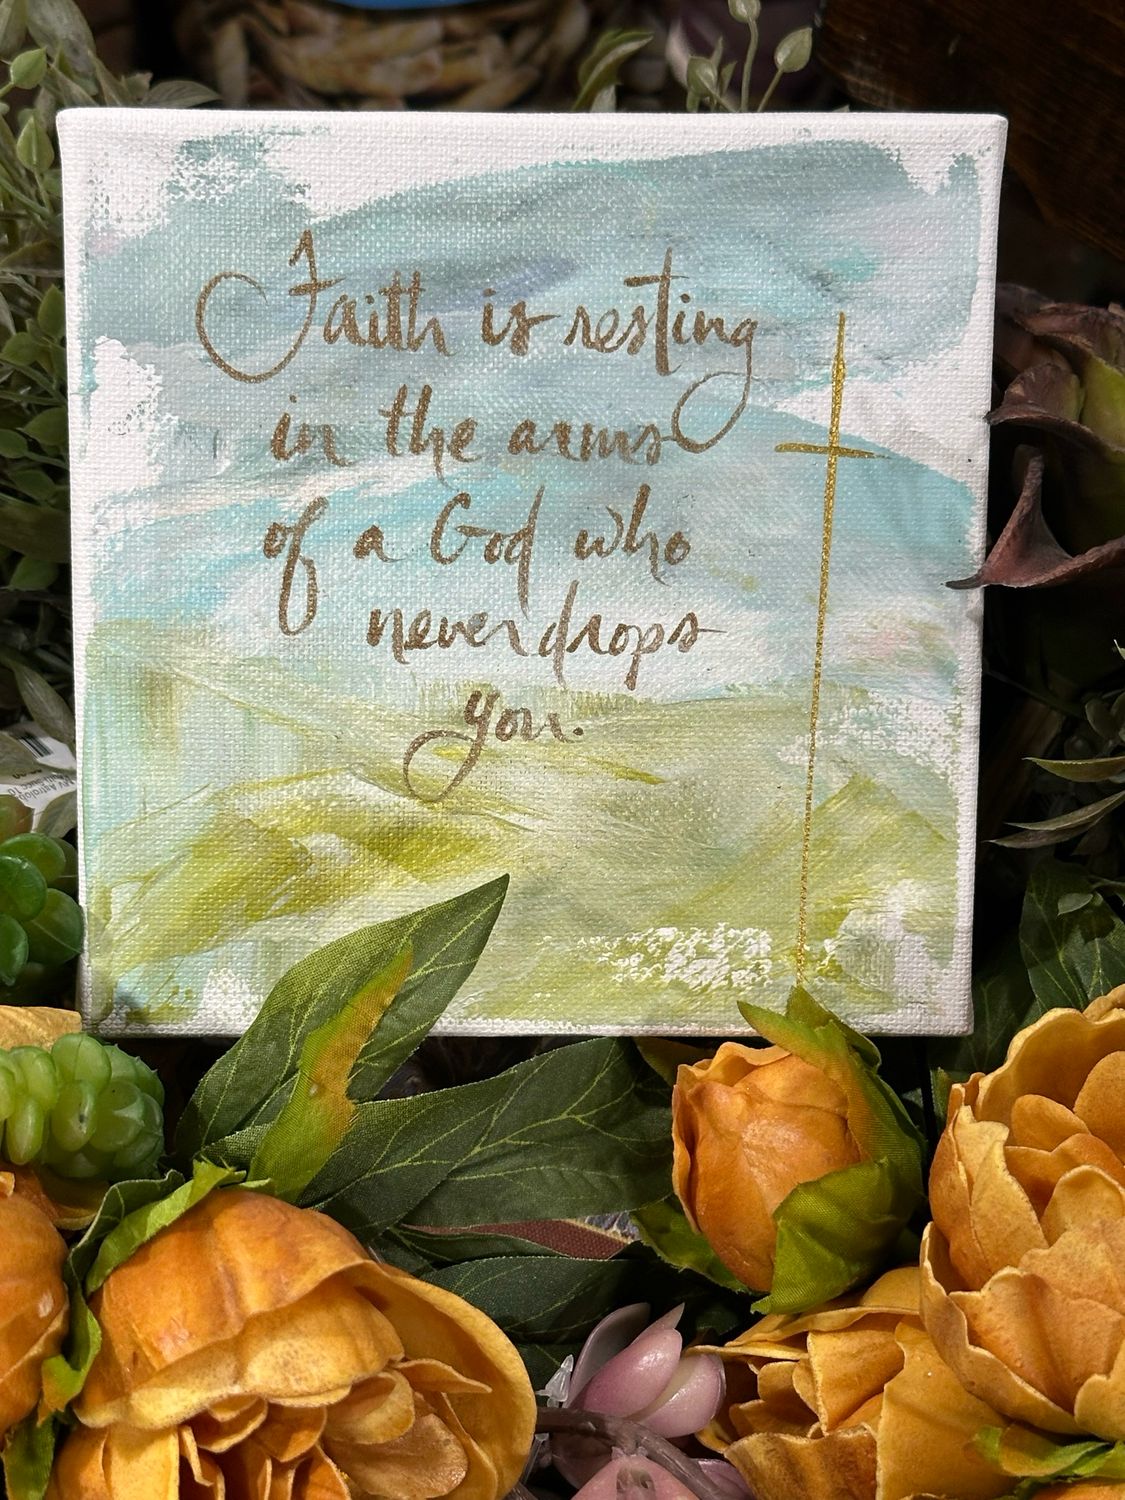 Faith is resting
in the arms
of a God who
never drops
you.